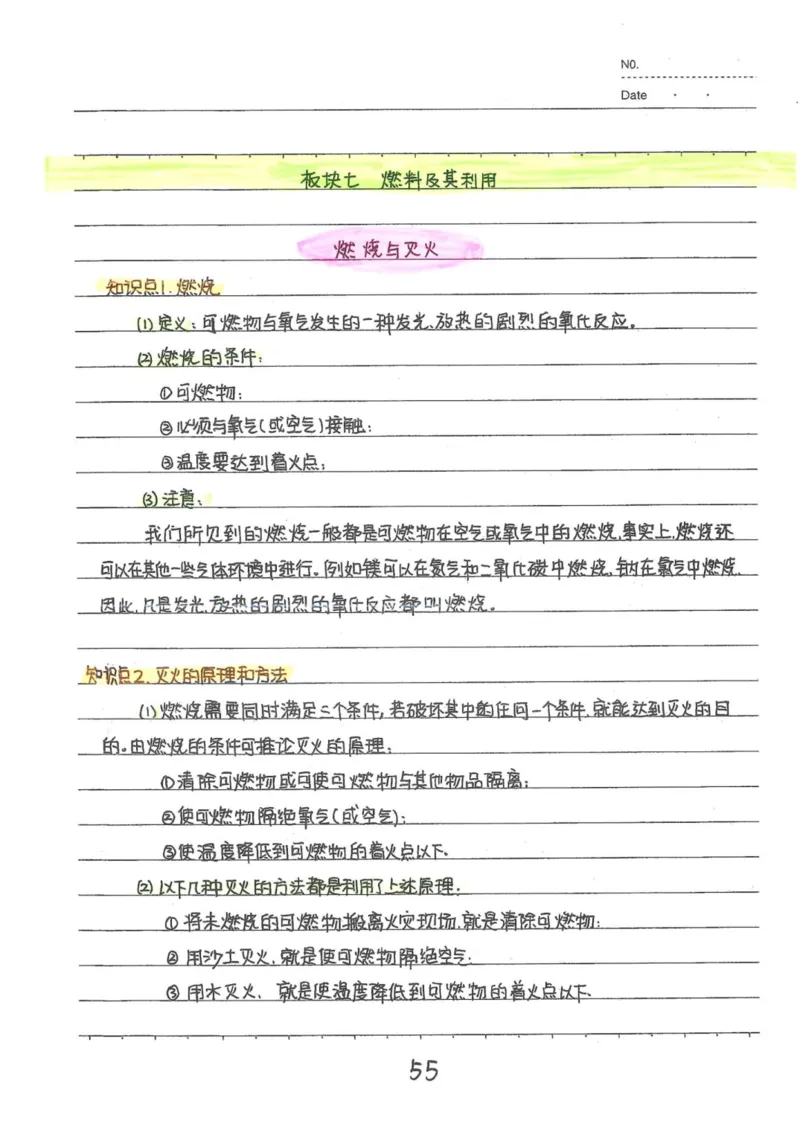 NO.
Date
板块七 燃料及其利用
燃烧与灭火
知识点1.燃烧
(1)定义:可燃物与氧气发生的一种发光、放热的剧烈的氧化反应。
(2)燃烧的条件:
①可燃物;
②必须与氧气(或空气)接触;
③温度要达到着火点;
(3)注意:
我们所见到的燃烧一般都是可燃物在空气或氧气中的燃烧,事实上,燃烧还
可以在其他一些气体环境中进行。例如镁可以在氮气和二氧化碳中燃烧,钠在氯气中燃烧.
因此,凡是发光、放热的剧烈的氧化反应都叫燃烧。
知识点2.灭火的原理和方法
(1)燃烧需要同时满足三个条件,若破坏其中的任何一个条件,就能达到灭火的目
的。由燃烧的条件可推论灭火的原理:
①清除可燃物或可使可燃物与其他物品隔离;
②使可燃物隔绝氧气(或空气);
③使温度降低到可燃物的着火点以下.
(2)以下几种灭火的方法都是利用了上述原理:
①将未燃烧的可燃物搬离火灾现场,就是清除可燃物;
②用沙土灭火,就是使可燃物隔绝空气;
③用水灭火,就是使温度降低到可燃物的着火点以下.
55